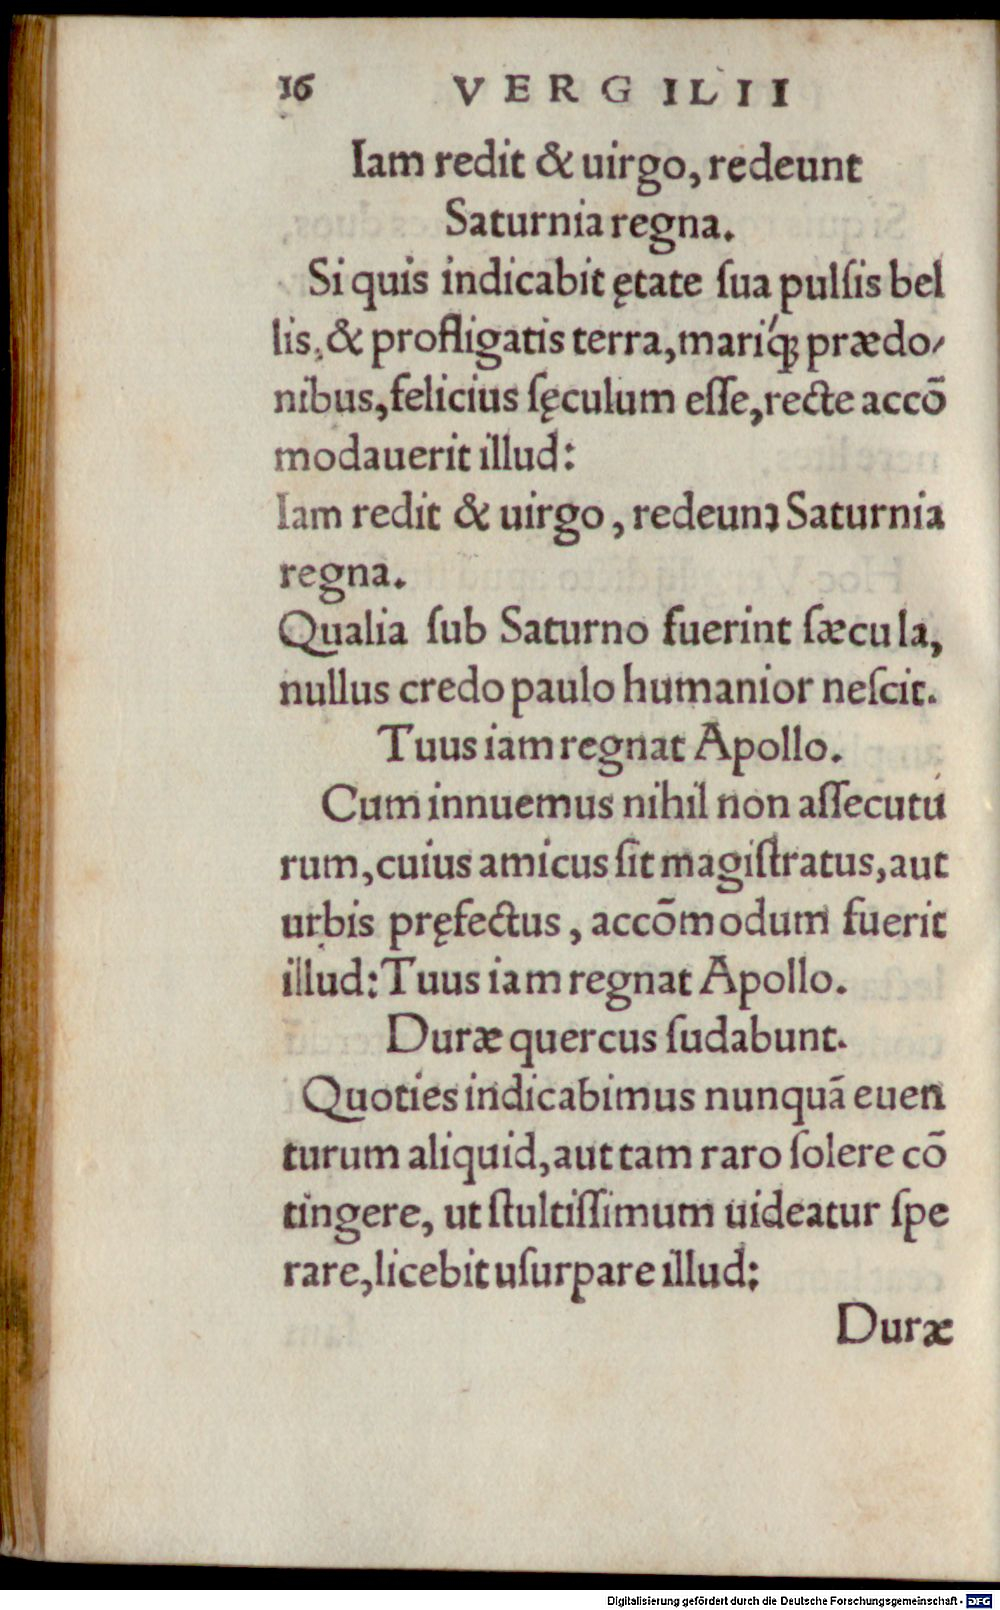 16 VERGILII
Iam redit & uirgo, redeunt
Saturnia regna.
Si quis indicabit ętate ſua pulſis bel
lis, & profligatis terra, mariq́; prædo⸗
nibus, felicius ſęculum eſſe, recte accō
modauerit illud:
Iam redit & uirgo, redeunt Saturnia
regna.
Qualia ſub Saturno fuerint ſæcula,
nullus credo paulo humanior neſcit.
Tuus iam regnat Apollo.
Cum innuemus nihil non aſſecutu
rum, cuius amicus ſit magiſtratus, aut
urbis pręfectus, accōmodum fuerit
illud: Tuus iam regnat Apollo.
Duræ quercus ſudabunt.
Quoties indicabimus nunquā euen
turum aliquid, aut tam raro ſolere cō
tingere, ut ſtultiſſimum uideatur ſpe
rare, licebit uſurpare illud:
Duræ
Digitalisierung gefördert durch die Deutsche Forschungsgemeinschaft - DFG